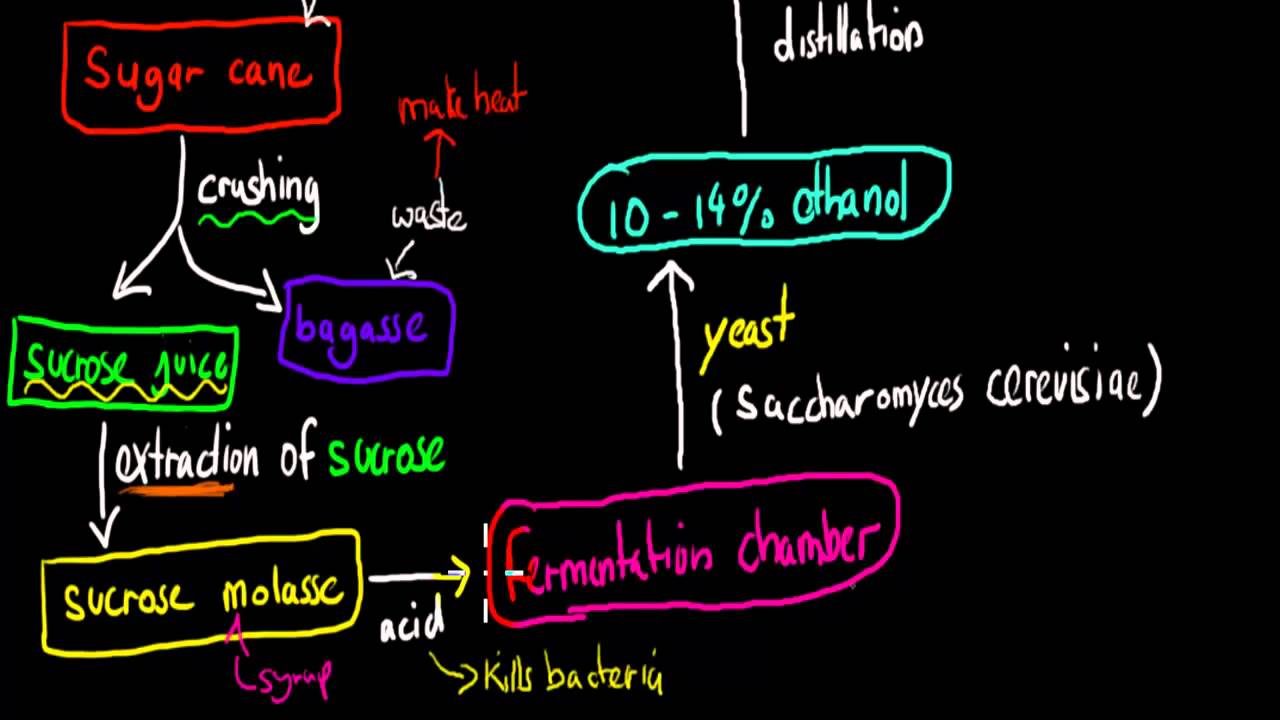 Sugar cane
crushing
make heat
waste
bagasse
sucrose juice
extraction of sucrose
sucrose molasse
syrup
acid
Kills bacteria
Fermentation chamber
yeast
(saccharomyces cerevisiae)
10-14% ethanol
distillation